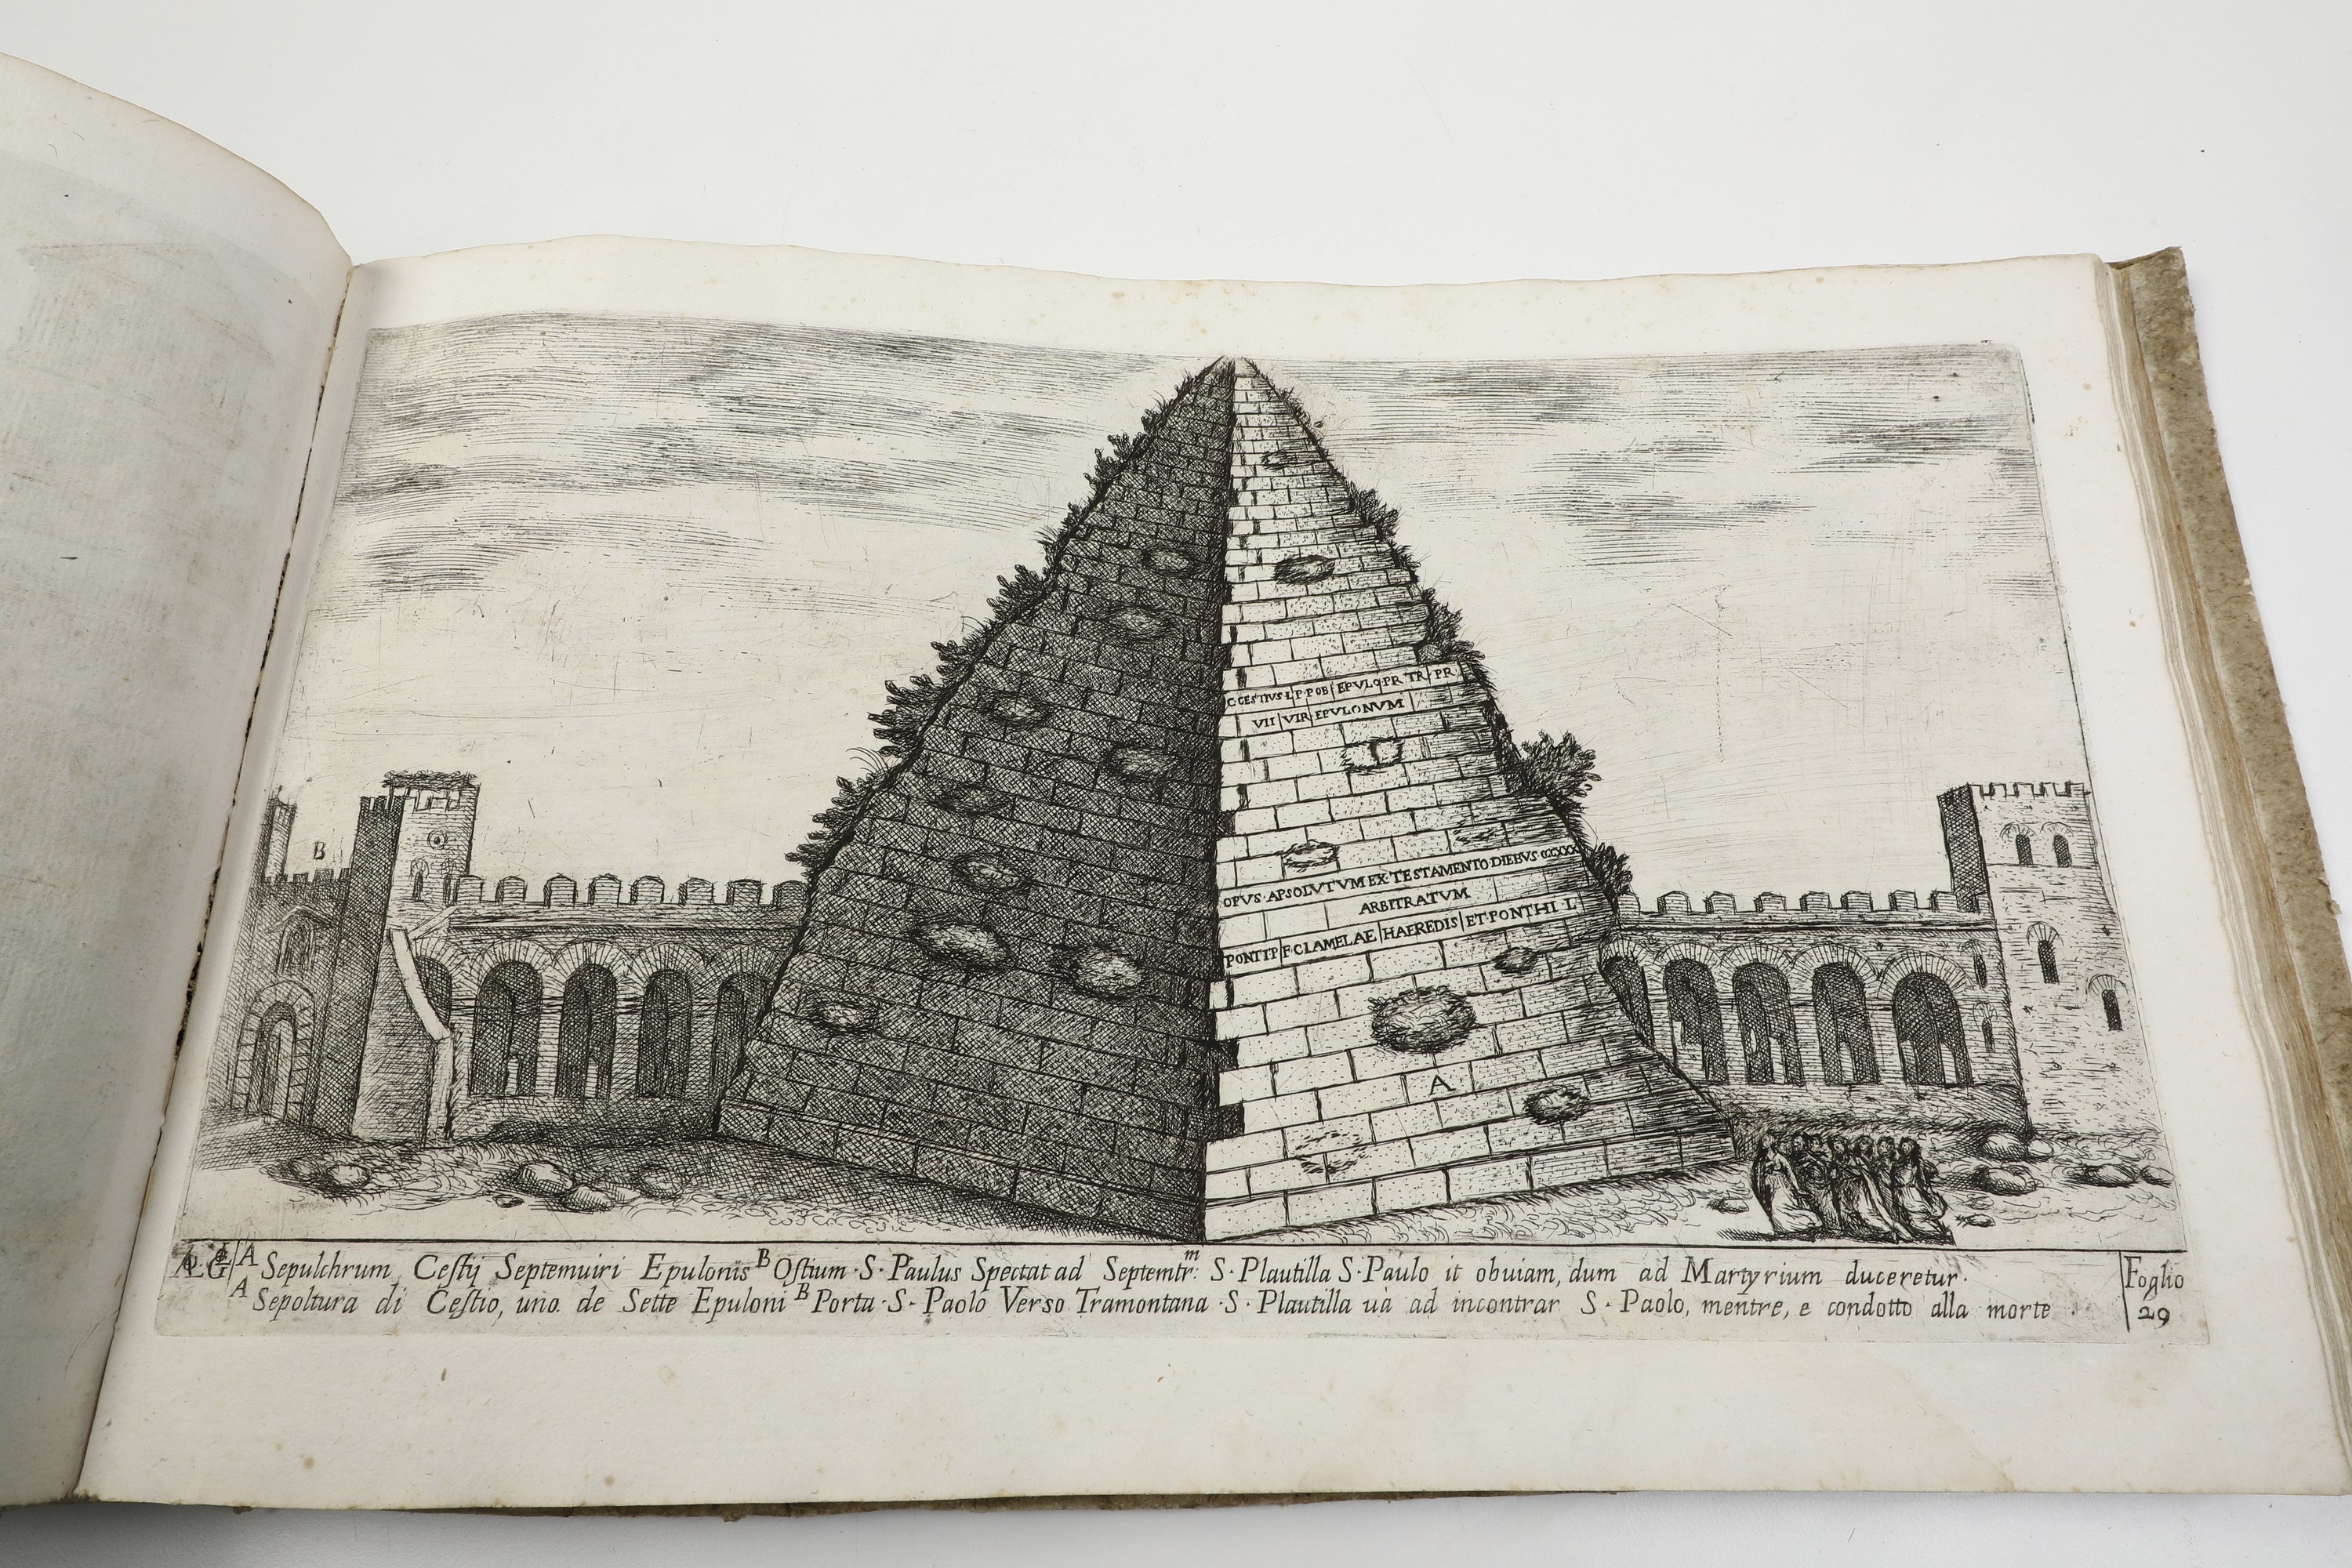 B
C·CESTIVS·L·P·POB EPVLO PR TR·PR
VII VIR EPVLONVM
OPVS·APSOLVTVM EX·TESTAMENTO·DIEBVS CCCXXX
ARBITRATVM
PONTI P F CLAMELAE HAEREDIS ET PONTHI L
A
A Sepulchrum Cestij Septemuiri Epulonis B Ostium·S·Paulus Spectat ad Septemtr:m S·Plautilla S·Paulo it obuiam, dum ad Martyrium duceretur·
A Sepoltura di Cestio, uno de Sette Epuloni B Porta·S·Paolo Verso Tramontana·S·Plautilla uà ad incontrar S·Paolo, mentre, e condotto alla morte
Foglio
29